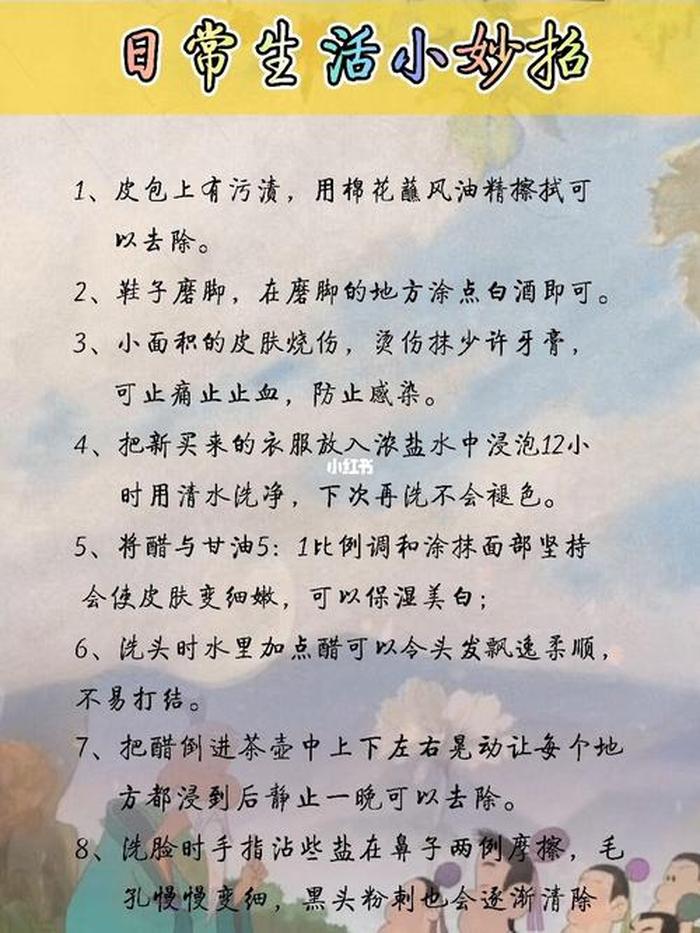 日常生活小妙招
1、皮包上有污渍，用棉花蘸风油精擦拭可
以去除。
2、鞋子磨脚，在磨脚的地方涂点白酒即可。
3、小面积的皮肤烧伤，烫伤抹少许牙膏，
可止痛止止血，防止感染。
4、把新买来的衣服放入浓盐水中浸泡12小
小红书
时用清水洗净，下次再洗不会褪色。
5、将醋与甘油5：1比例调和涂抹面部坚持
会使皮肤变细嫩，可以保湿美白；
6、洗头时水里加点醋可以令头发飘逸柔顺，
不易打结。
7、把醋倒进茶壶中上下左右晃动让每个地
方都浸到后静止一晚可以去除。
8、洗脸时手指沾些盐在鼻子两侧摩擦，毛
孔慢慢变细，黑头粉刺也会逐渐清除